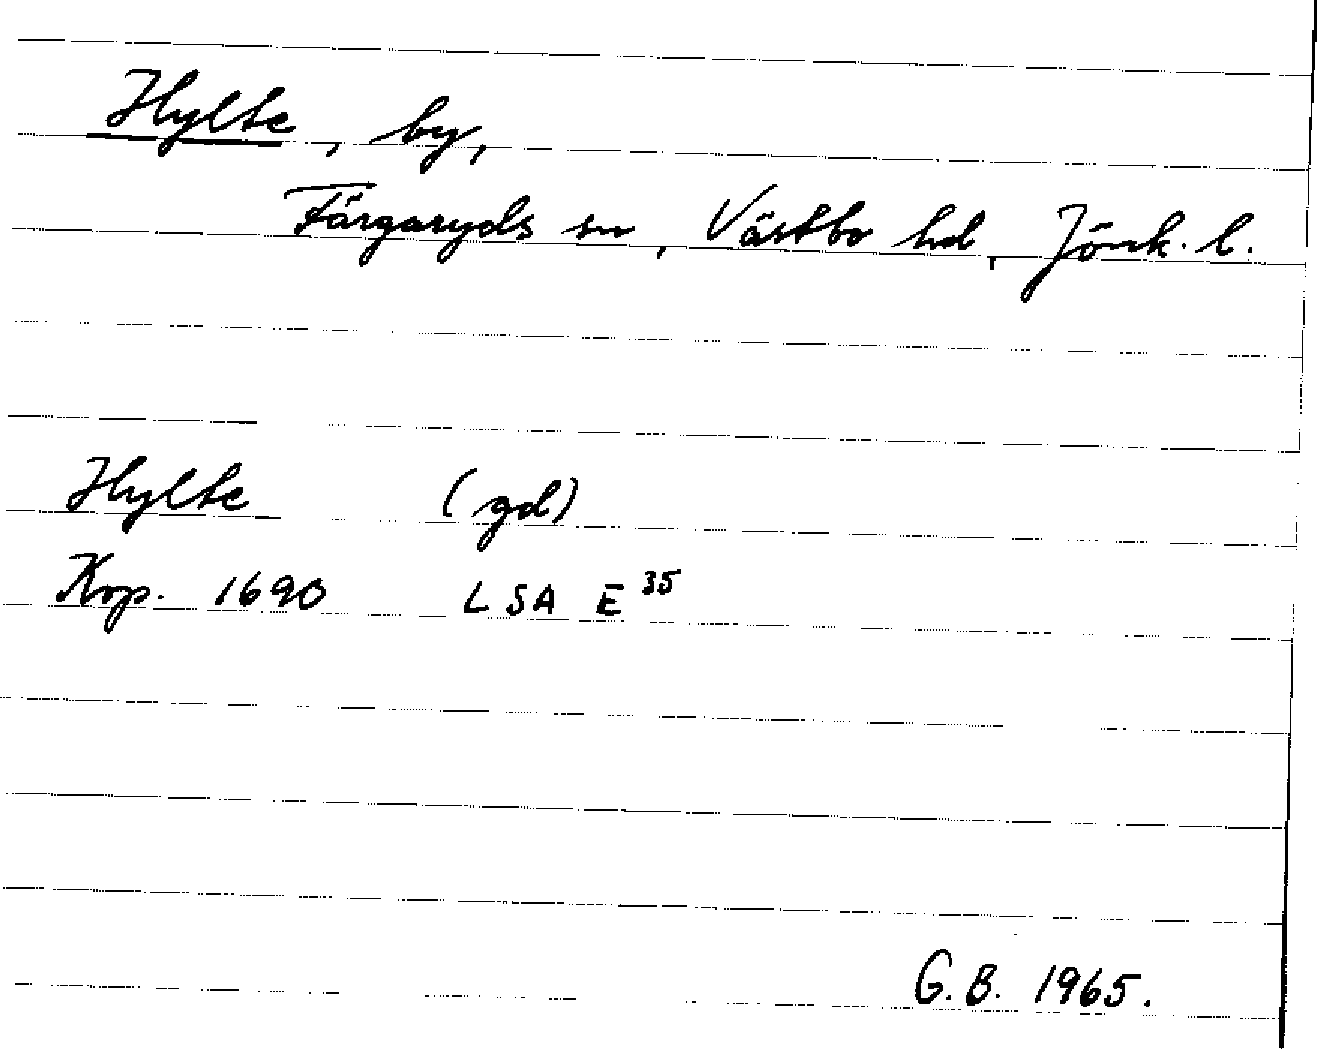 Hylte, by,
Färgaryds sn, Västbo hd, Jönk. l.
Hylte (gd)
Kop. 1690 LSA E 35
G.B. 1965.